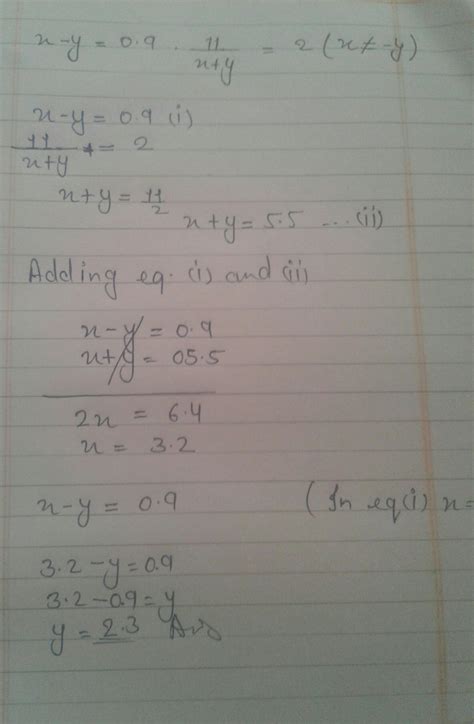 x-y = 0.9 . 11/(x+y) = 2 (x ≠ -y)
x-y = 0.9 (i)
11/(x+y) = 2
x+y = 11/2
x+y = 5.5 ... (ii)
Adding eq. (i) and (ii)
x-y = 0.9
x+y = 05.5
2x = 6.4
x = 3.2
x-y = 0.9 (In eq(i) x=
3.2-y=0.9
3.2-0.9=y
y = 2.3 Ans